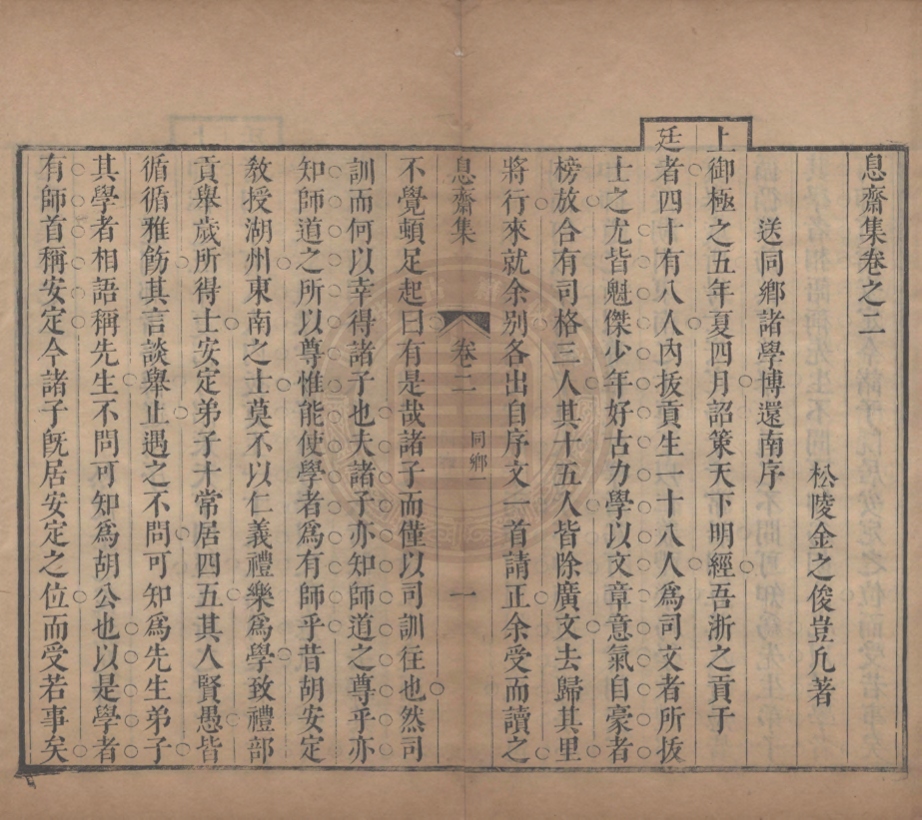 息齋集卷之二
松陵金之俊豈凡著
送同鄉諸學博還南序
上御極之五年夏四月詔策天下明經吾浙之貢于
廷者四十有八人內拔貢生一十八人爲司文者所拔
士之尤皆魁傑少年好古力學以文章意氣自豪者
榜放合有司格三人其十五人皆除廣文去歸其里
將行來就余别各出自序文一首請正余受而讀之
息齋集 卷二 同鄉一 一
不覺頓足起曰有是哉諸子而僅以司訓往也然司
訓而何以幸得諸子也夫諸子亦知師道之尊乎亦
知師道之所以尊惟能使學者爲有師乎昔胡安定
教授湖州東南之士莫不以仁義禮樂爲學致禮部
貢舉歲所得士安定弟子十常居四五其人賢愚皆
循循雅飭其言談舉止遇之不問可知爲先生弟子
其學者相語稱先生不問可知爲胡公也以是學者
有師首稱安定今諸子旣居安定之位而受若事矣